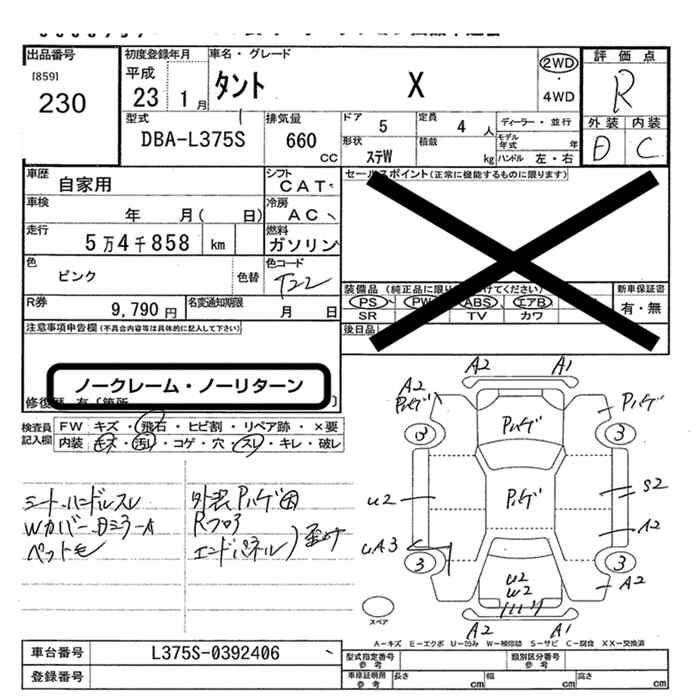 出品番号 初度登録年月 車名・グレード 評価点
[859]
230
平成
23 1月 タント X 2WD・4WD R
型式 排気量 ドア 定員 ディーラー・並行 外装 内装
DBA-L375S 660 CC 5 4人 モデル年式 年 D C
形状 積載
ステW kg ハンドル 左・右
車歴 シフト セールスポイント(正常に機能するものに限ります)
自家用 CAT
車検 冷房
年 月( 日) AC
走行 燃料
5万4千858 km ガソリン
色 色コード
ピンク 色替 T22
装備品(純正品に限り けてください) 新車保証書
R券 名変通知期限 PS・PW・ABS・エアB 有・無
9,790円 月 日 SR TV カワ
注意事項申告欄(不具合内容等は具体的に記入して下さい) 後日品
ノークレーム・ノーリターン
修復歴 有〔箇所 〕
検査員記入欄
FW キズ・飛石・ヒビ割・リペア跡・×要
内装 キズ・汚れ・コゲ・穴・スレ・キレ・破レ
シート.ハンドルスレ
Wカバー.日ミラーA
ペット毛
外装Pハゲ大
Rフロア
エンドパネル)歪み
A2 A1
A2 Pハゲ Pハゲ Pハゲ
3 3
U2 Pハゲ S2
A2
UA3
3 3
U2 A2
W2
A2 A1
スペア
A−キズ E−エクボ U−凹み W−補修跡 S−サビ C−腐食 XX−交換済
車台番号 L375S-0392406 型式指定番号 参考 類別区分番号 参考
登録番号 車庫証明用 参考 長さ cm 幅 cm 高さ cm